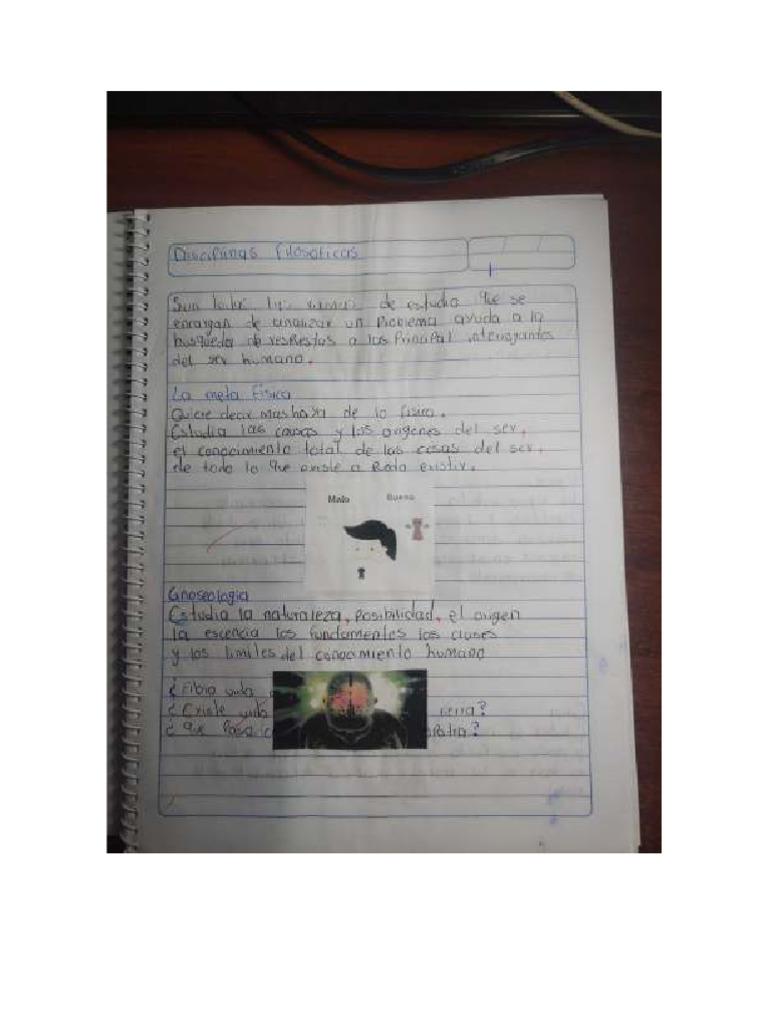 Disciplinas filosoficas
Son todas las ramas de estudio que se
encargan de analizar un Problema ayuda a la
busqueda de resPestas a las PrinciPal interrogantes
del ser humano.
La meta Fisica
Quiere decir mas haya de lo fisico.
Estudia las causas y los origenes del ser,
el conocimiento total de las cosas del ser,
de todo lo que existe a Poda existir.
Malo Bueno
Gnoseologia
Estudia la naturaleza, Posibilidad, el origen
la escencia los fundamentes las clases
y los limites del conocimiento humano
vida
¿Existe vida tierra?
¿Que Pasa